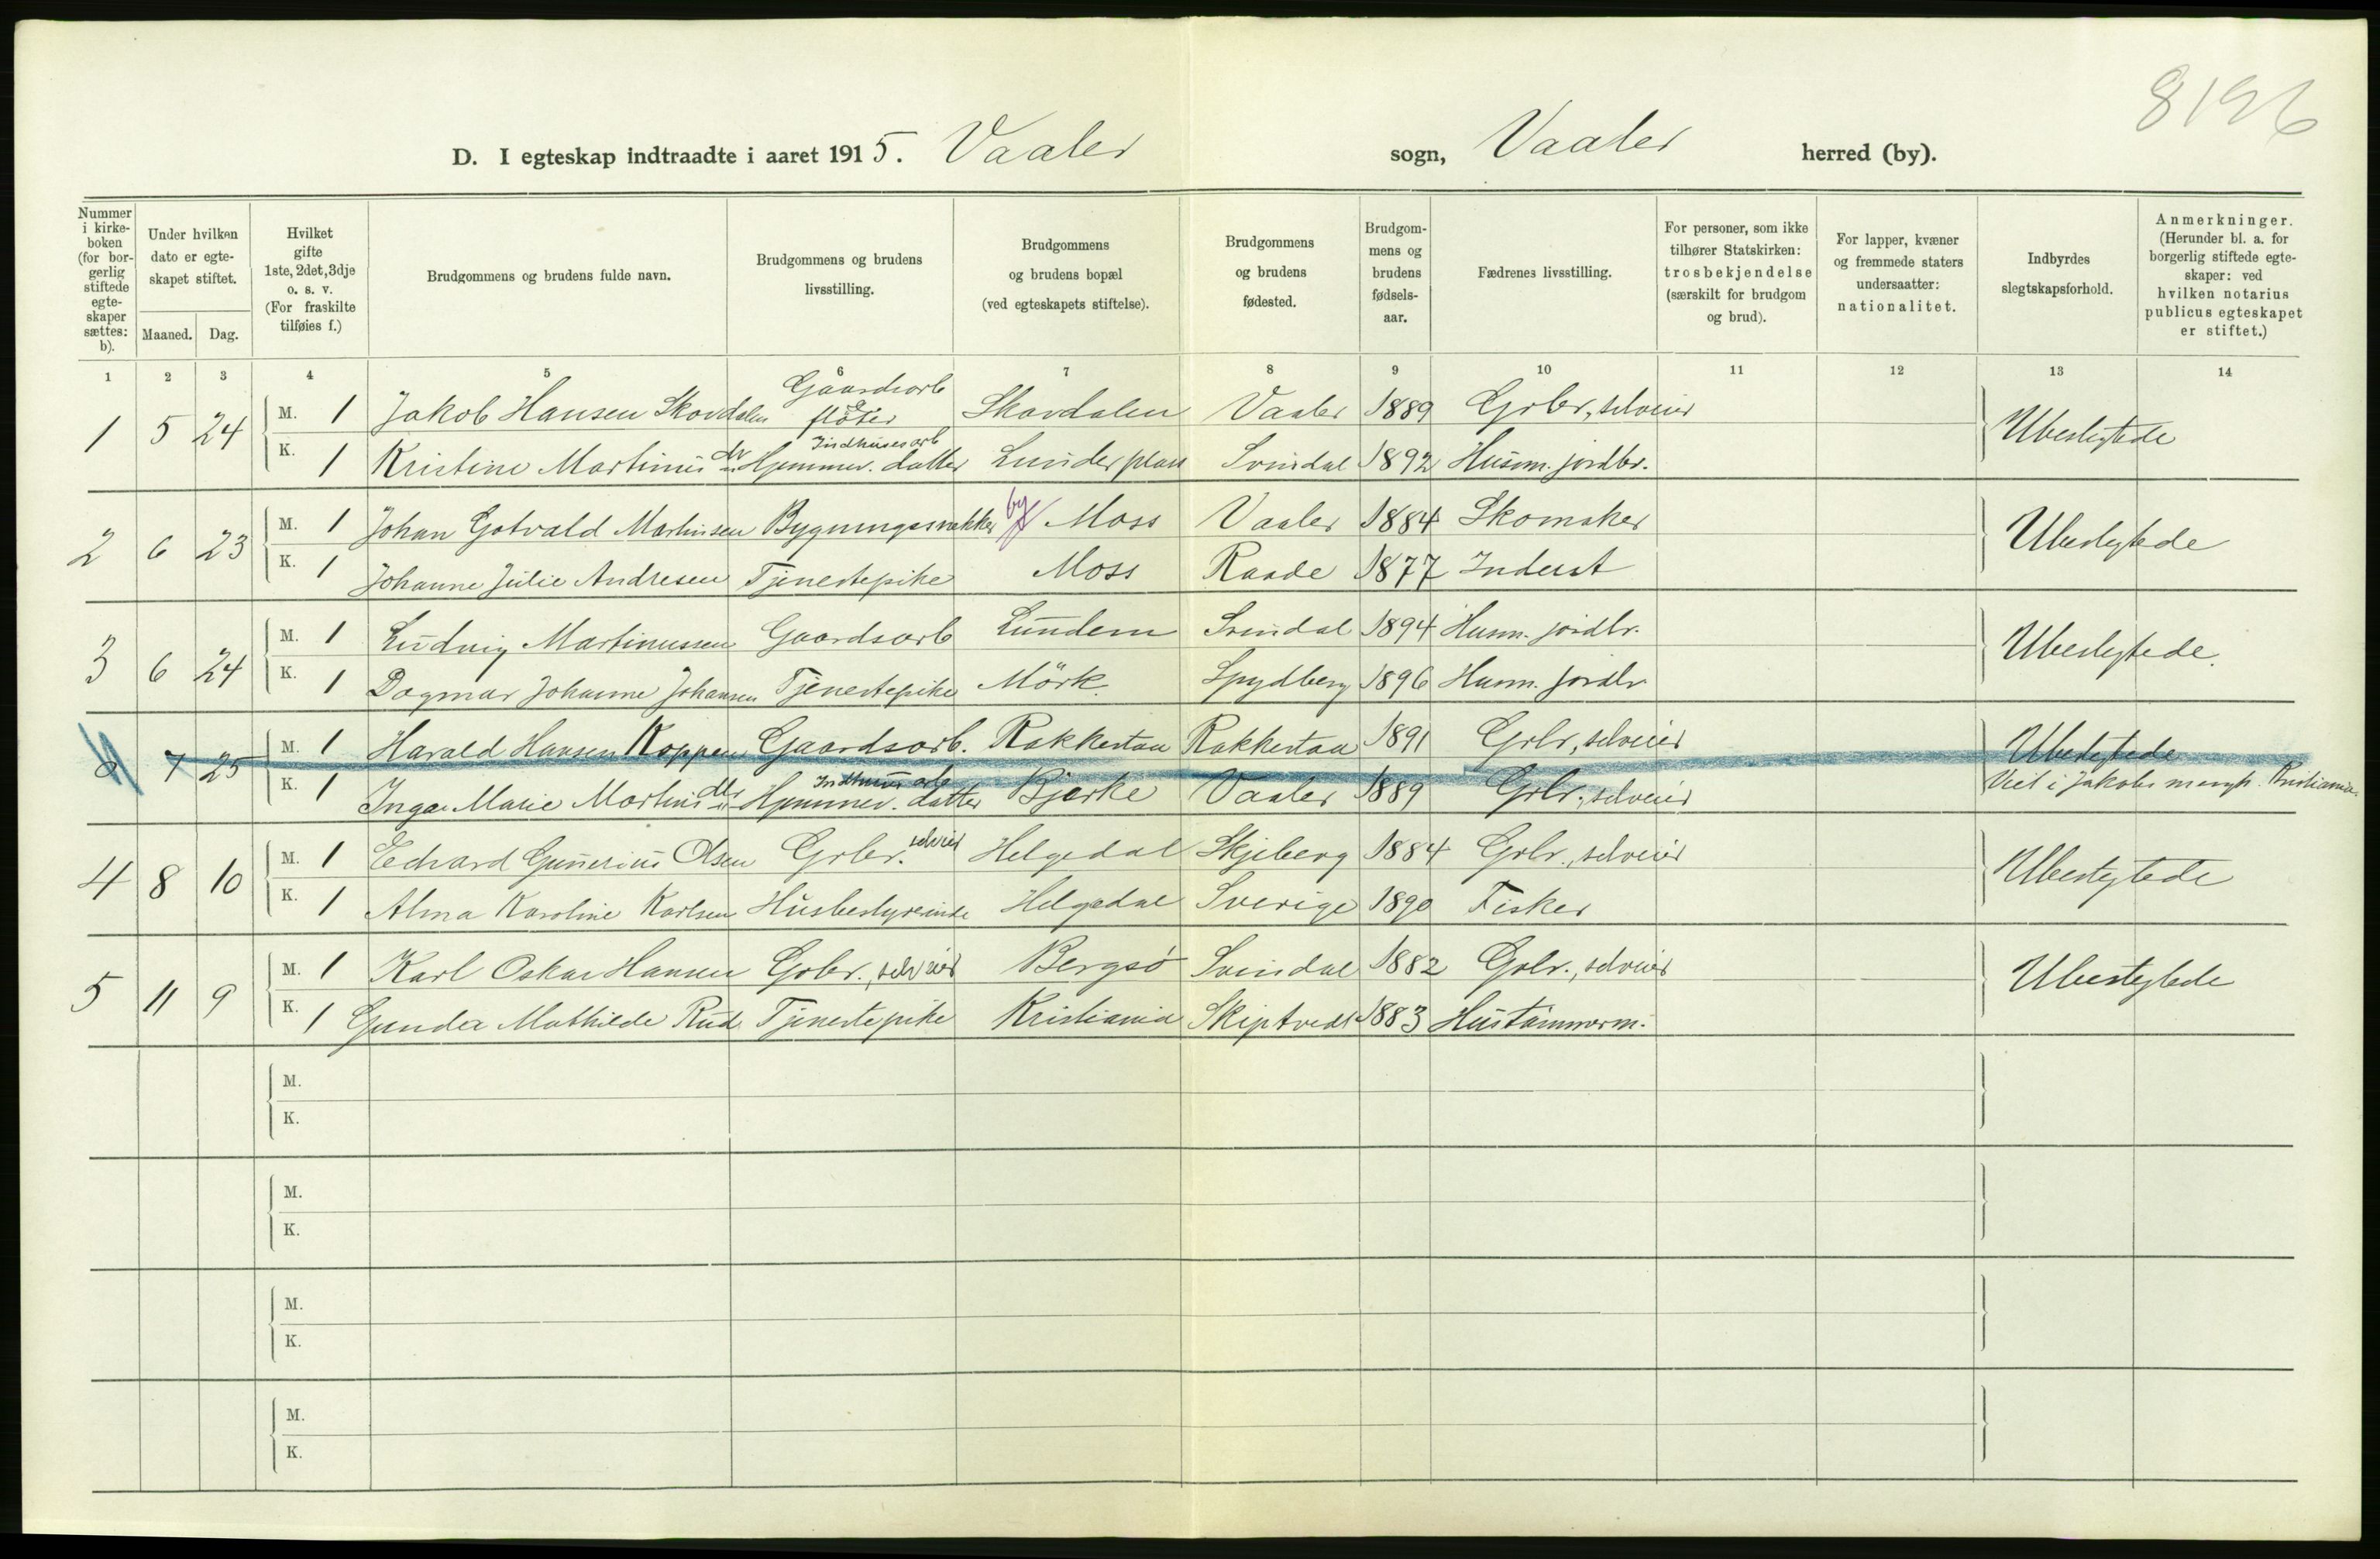 8196
D. I egteskap indtraadte i aaret 1915. Vaaler sogn, Vaaler herred (by).
Nummer i kirkeboken (for borgerlig stiftede egteskaper sættes: b).
Under hvilken dato er egteskapet stiftet.
Maaned. Dag.
Hvilket gifte 1ste, 2det, 3dje o. s. v. (For fraskilte tilføies f.)
Brudgommens og brudens fulde navn.
Brudgommens og brudens livsstilling.
Brudgommens og brudens bopæl (ved egteskapets stiftelse).
Brudgommens og brudens fødested.
Brudgommens og brudens fødselsaar.
Fædrenes livsstilling.
For personer, som ikke tilhører Statskirken: trosbekjendelse (særskilt for brudgom og brud).
For lapper, kvæner og fremmede staters undersaatter: nationalitet.
Indbyrdes slegtskapsforhold.
Anmerkninger. (Herunder bl. a. for borgerlig stiftede egteskaper: ved hvilken notarius publicus egteskapet er stiftet.)
1 2 3 4 5 6 7 8 9 10 11 12 13 14
1 5 24 M. 1 Jakob Hansen Skovdalen Gaardsarb fløter Skovdalen Vaaler 1889 Grbr, selveier Ubeslegtede
K. 1 Kristine Martinusdr Hjemmev. datter Indhusesarb Lunder plass Svindal 1892 Husm. jordbr.
2 6 23 M. 1 Johan Gotvald Martinsen Bygningssnekker by Moss Vaaler 1884 Skomaker Ubeslegtede
K. 1 Johanne Julie Andresen Tjenestepike Moss Raade 1877 Inderst
3 6 24 M. 1 Ludvig Martinussen Gaardsarb Lundem Svindal 1894 Husm. jordbr. Ubeslegtede.
K. 1 Dagmar Johanne Johansen Tjenestepike Mörk. Spydberg 1896 Husm. jordbr
7 25 M. 1 Harald Hansen Koppen Gaardsarb. Rakkestad Rakkestad 1891 Grbr, selveier Ubeslegtede
K. 1 Inga Marie Martinusdtr Hjemmev. datter Indhusesarb Bjerke Vaaler 1889 Grbr., selveier Viet i Jakobs menigh. Kristiania.
4 8 10 M. 1 Edvard Gunerius Olsen Grbr. selveier Helgedal Skjeberg 1884 Grbr., selveier Ubeslegtede
K. 1 Alma Karoline Karlsen Husbestyrerinde Helgedal Sverige 1890 Fisker
5 11 9 M. 1 Karl Oskar Hansen Grbr., selveier Bergsö Svindal 1882 Grbr., selveier Ubeslegtede
K. 1 Gunda Mathilde Rud Tjenestepike Kristiania Skiptvedt 1883 Hustømmerm.
M.
K.
M.
K.
M.
K.
M.
K.